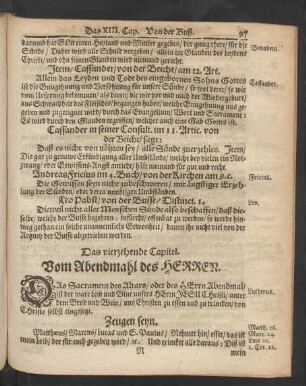 Das XIII. Cap. Von der Buß. 97
darumb hat Gott einen Heyland und Mittler gegeben, der gnug thete, für die
Sünde, Daher wird alle Schuld vergeben, allein im Glauben des Leydens
Christi, und ohn einem Glauben wird niemand gerecht.
Bonavent.
Item, Cassander, von der Beicht, am 12. Art.
Allein das Leyden und Tod des eingebornen Sohns Gottes
ist die Gnugthuung und Versöhnung für unsere Sünde, so wol derer, so wir
von Ursprung bekommen, als deren, die wir auch nach der Wiedergeburt,
aus Schwachheit des Fleisches, begangen haben, welche Gnugthuung uns ge
geben und zugeeignet wird, durch den Glauben, Wort und Sacrament:
Es wird durch den Glauben ergreiffen, welcher auch eine Gab Gottes ist.
Cassander.
Cassander in seiner Consult. im 11. Artic. von
der Beicht, sagt:
Daß es nicht von nöhten sey, alle Sünde zuerzehlen. Item,
Die gar zu genawe Erkündigung aller Umbstände, welche bey vielen ein Noht
zwang, oder Gewissens-Angst erreicht, habe ich niemals für gut und recht
Andreas Fricius im 4. Buch, von der Kirchen am 9. c.
Die Gewissen seyn nicht zubeschweren, mit ängstiger Erzeh
lung der Sünden, oder deren unnötigen Umbständen.
Fricius.
Leo Pabst, von der Busse, Distinct. 1.
Dieweil nicht aller Menschen Sünde also beschaffen, daß die
selbe, welche der Busse begehren, bedörffen
weg gethan ein solche unannemliche Gewonheit, damit ihr nicht viel von der
Artzney der Busse abgetrieben werden.
Leo.
Das vierzehende Capitel.
Vom Abendmahl des HERREN.
Das Sacrament des Altars, oder des HErrn Abendmal,
ist der ware Leib und Blut unsers HErrn JEsu Christi, unter
dem Brod und Wein, uns Christen zu essen und zu trincken, von
Christo selbst eingesetzt.
Lutherus.
Zeugen seyn.
Matthæus, Marcus, Lucas und S. Paulus, Nehmet hin, esset, das ist
mein Leib, der für euch gegeben wird, ec. Und trincket alle daraus, Diß ist
Matth. 26.
Marc. 14.
Luc. 22.
1. Cor. 11.
N
mein